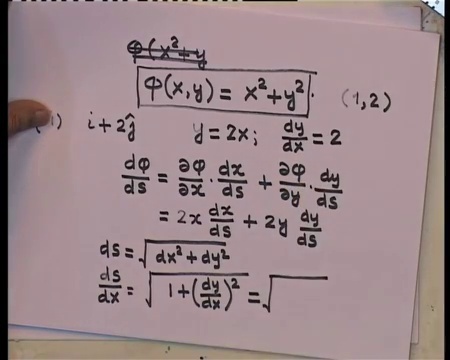 Φ(x²+y
Φ(x,y) = x²+y². (1,2)
i+2ĵ y=2x; dy/dx = 2
dΦ/ds = ∂Φ/∂x · dx/ds + ∂Φ/∂y · dy/ds
= 2x dx/ds + 2y dy/ds
ds = √(dx²+dy²)
ds/dx = √(1+(dy/dx)²) = √